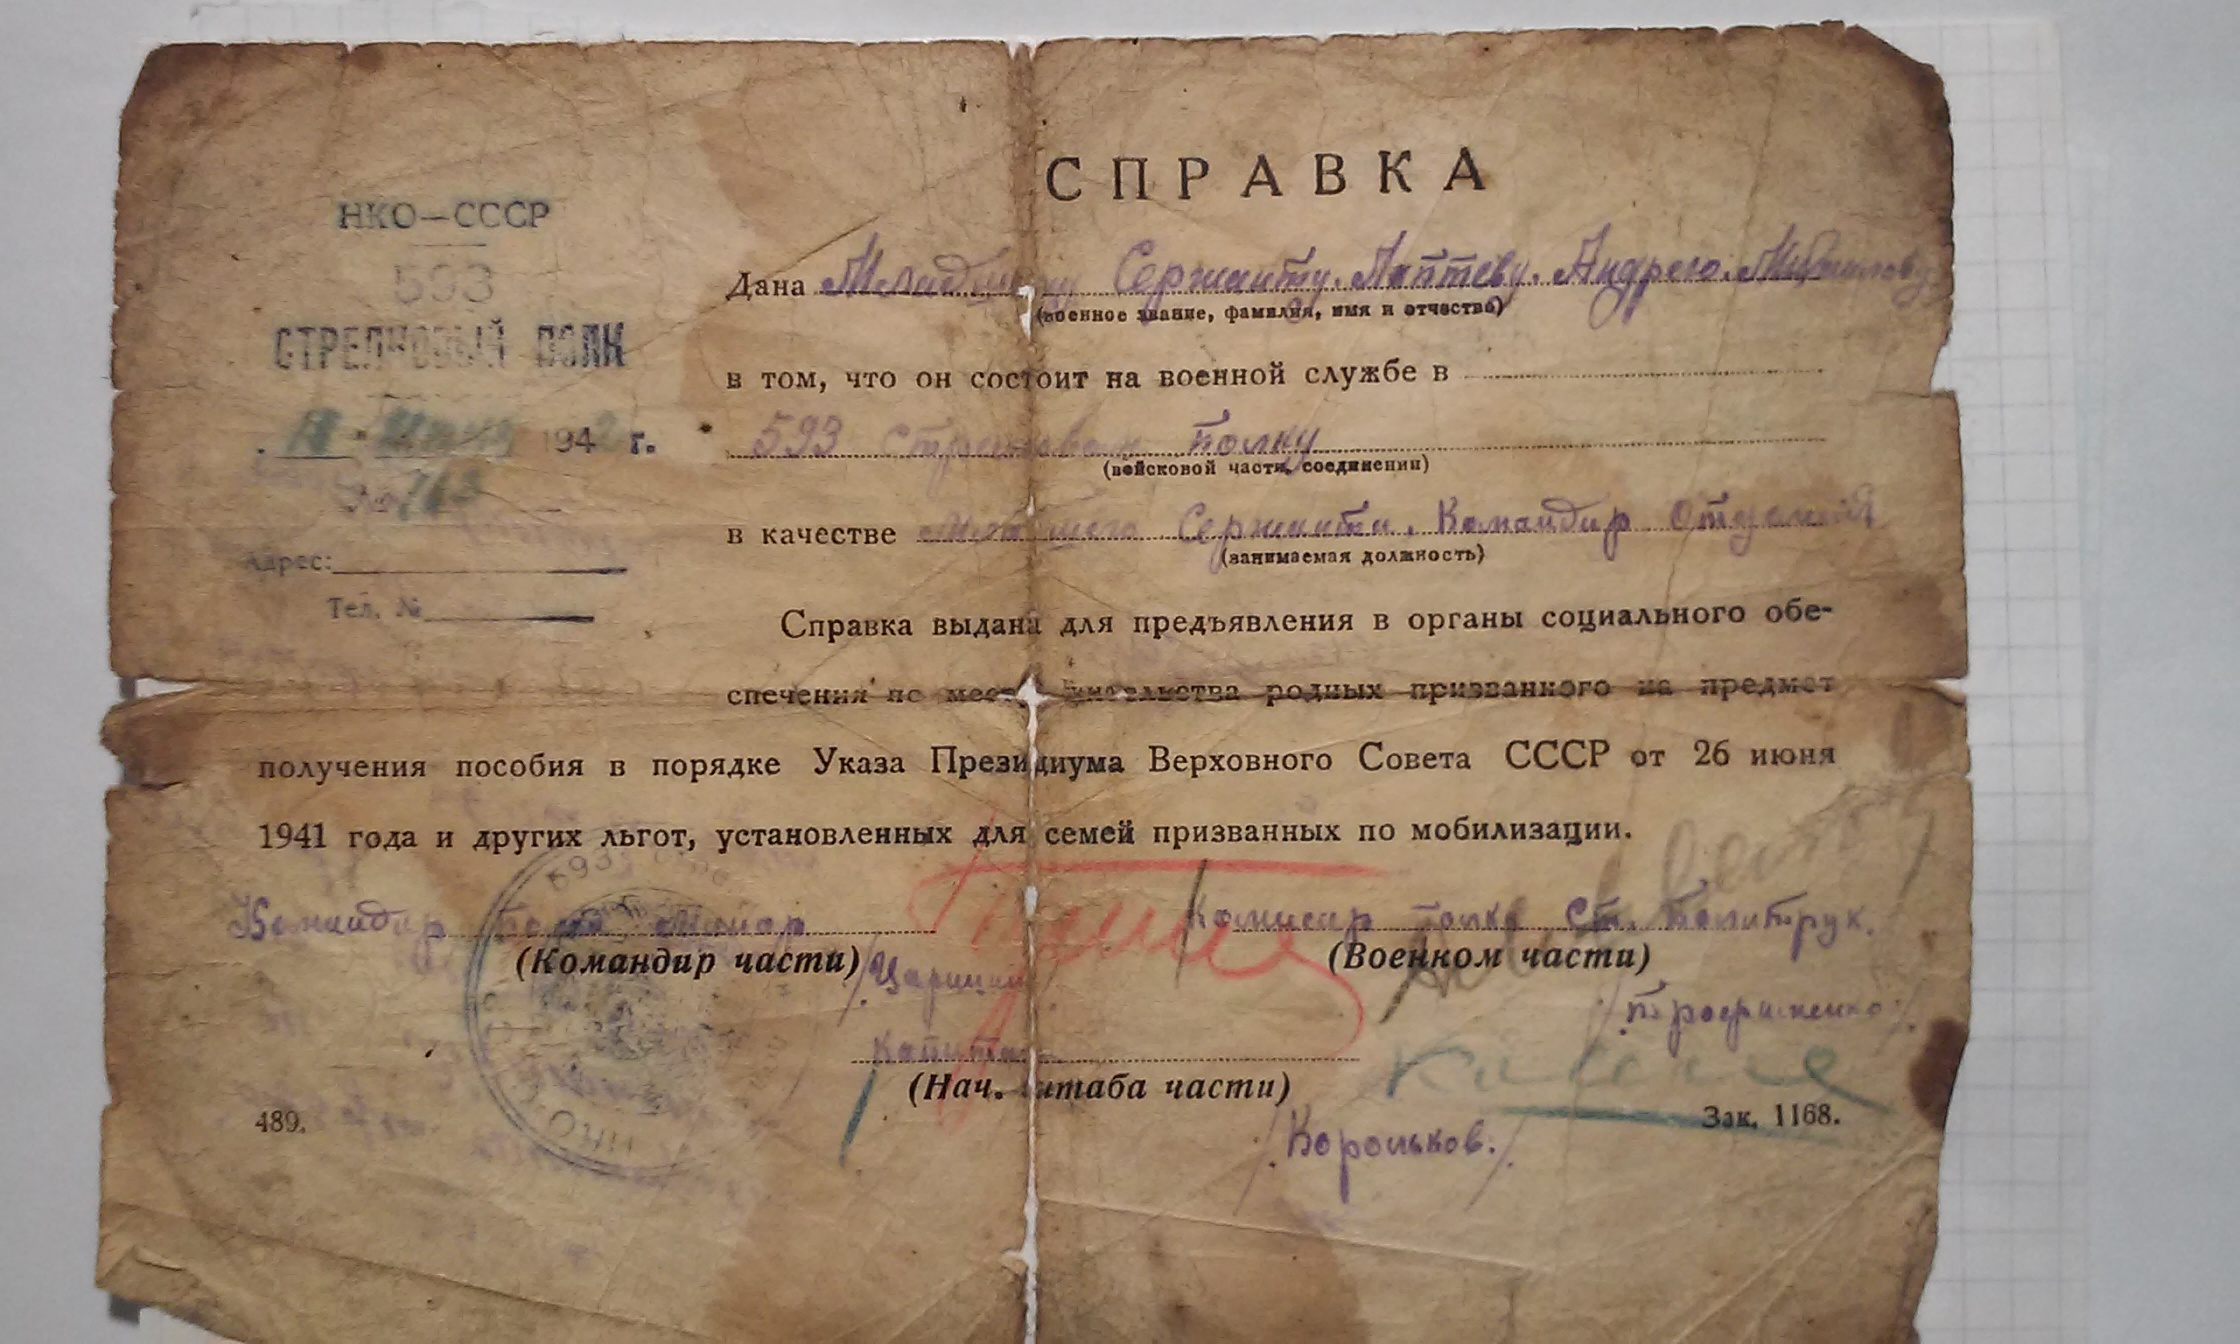 СПРАВКА
НКО—СССР
593
СТРЕЛКОВЫЙ ПОЛК
194 г.
№ 763
Адрес:
Тел. №
Дана Младшему Сержанту. Лаптеву. Андрею.
(военное звание, фамилия, имя и отчество)
в том, что он состоит на военной службе в
593 Стрелковом полку
(войсковой части, соединении)
в качестве младшего Сержанта. Командир Отделения
(занимаемая должность)
Справка выдана для предъявления в органы социального обе-
спечения по месту жительства родных призванного на предмет
получения пособия в порядке Указа Президиума Верховного Совета СССР от 26 июня
1941 года и других льгот, установленных для семей призванных по мобилизации.
Командир полка майор
(Командир части)
Комисар полка Ст. политрук.
(Военком части)
Капитан
(Нач. штаба части)
/Корольков./
489.
Зак. 1168.
593
НКО